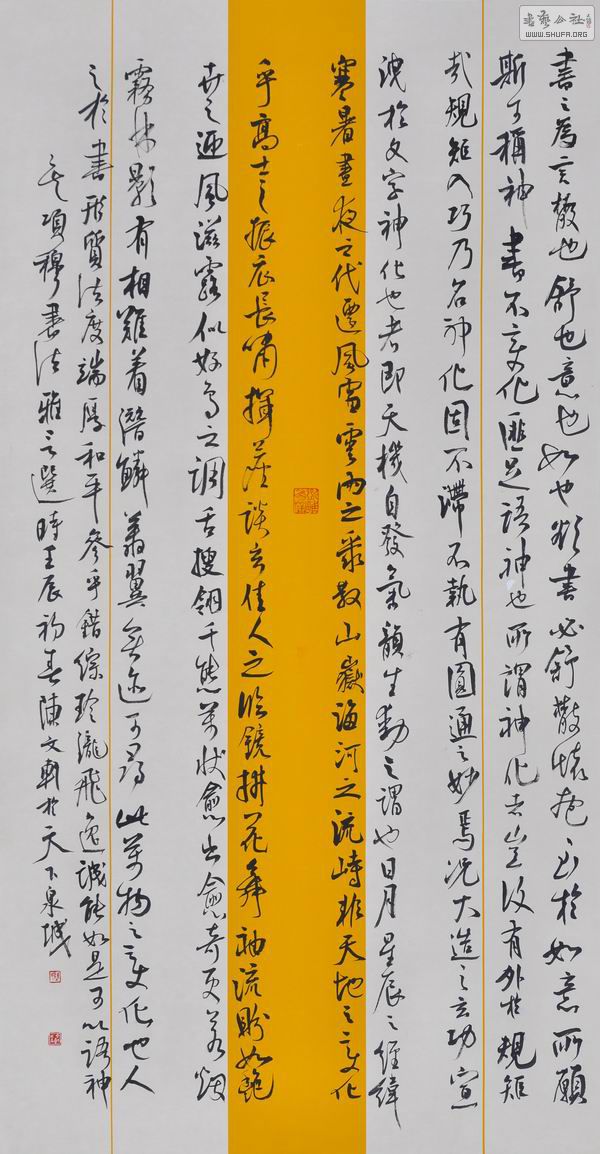 書之為言散也舒也意也如也欲書必舒散懷抱至於如意所願
斯可稱神書不變化匪足語神也所謂神化者豈復有外於規矩
哉規矩入巧乃名神化固不滯不執有圓通之妙焉況大造之玄功宣
洩於文字神化也者即天機自發氣韻生動之謂也日月星辰之經緯
寒暑晝夜之代遷風雷雲雨之聚散山嶽海河之流峙非天地之變化
乎高士之振衣長嘯揮麈談玄佳人之臨鏡拂花舞袖流盼如艷
卉之迎風滋露似好鳥之調舌搜翎千態萬狀愈出愈奇更若煙
霧林影有相難着潛鱗翥翼無迹可尋此萬物之變化也人
之於書形質法度端厚和平參乎錯綜玲瓏飛逸誠能如是可以語神
矣項穆書法雅言選時壬辰初春陳文軒於天下泉城
書藝公社
WWW.SHUFA.ORG